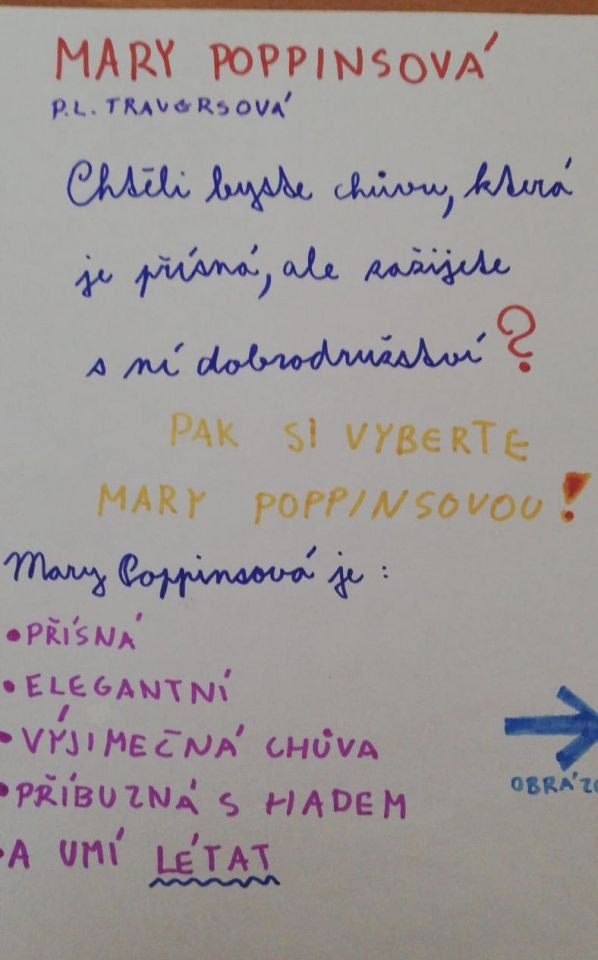 MARY POPPINSOVÁ
P.L. TRAVERSOVÁ
Chtěli byste chůvu, která
je přísná, ale zažijete
s ní dobrodružství?
PAK SI VYBERTE
MARY POPPINSOVOU!
Mary Poppinsová je :
•PŘÍSNÁ
•ELEGANTNÍ
•VÝJIMEČNÁ CHŮVA
•PŘÍBUZNÁ S HADEM
•A UMÍ LÉTAT